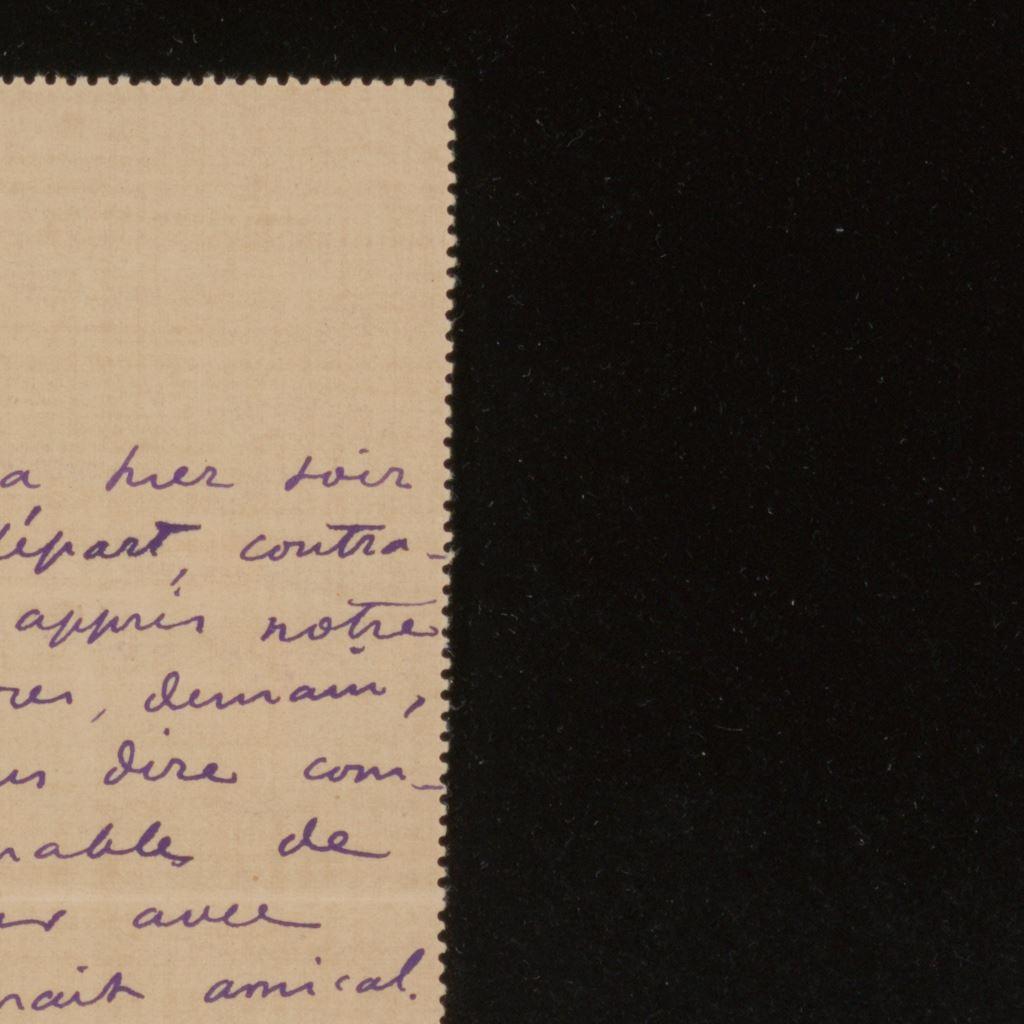 a hier soir
départ, contra-
appris notre
res, demain,
us dire com-
rables de
avec
rait amical.